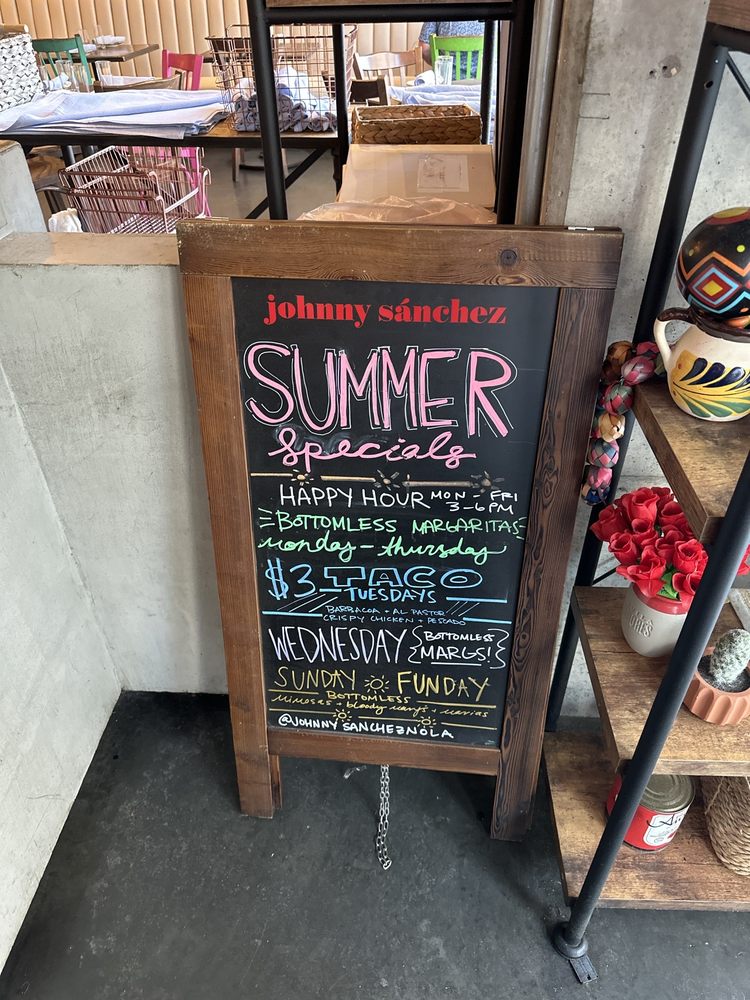 johnny sánchez
SUMMER
Specials
HAPPY HOUR MON - FRI
3-6PM
BOTTOMLESS MARGARITAS
monday - thursday
$3 TACO
TUESDAYS
BARBACOA + AL PASTOR
CRISPY CHICKEN + PESCADO
WEDNESDAY {BOTTOMLESS
MARGS!}
SUNDAY FUNDAY
BOTTOMLESS
mimosas + bloody marys + marias
@JOHNNYSANCHEZNOLA